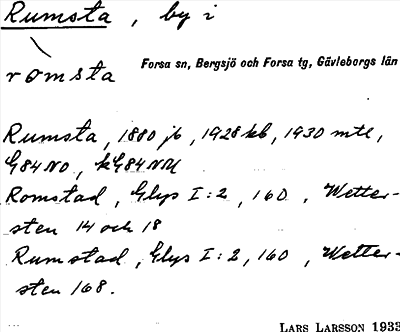 Rumsta, by i
romsta
Forsa sn, Bergsjö och Forsa tg, Gävleborgs län
Rumsta, 1880 jb, 1928 kb, 1930 mtl,
G84NO, kG84NU
Romstad, Glys I:2, 160, Wetter-
sten 14 och 18
Rumstad, Glys I:2, 160, Wetter-
sten 168.
LARS LARSSON 1933